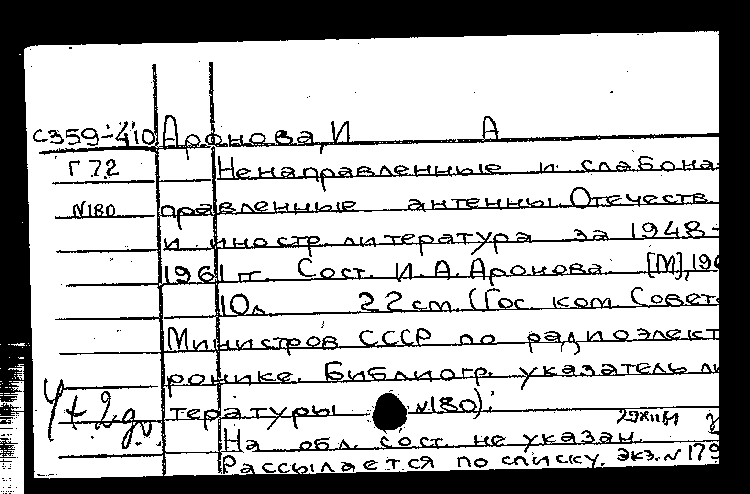 С359-410 Аронова, И А
Г 72 Ненаправленные и слабона-
N180 правленные антенны. Отечеств.
и иностр. литература за 1948-
1961 гг. Сост. И. А. Аронова. [М], 196
10 л. 22 см. (Гос. ком. Совет
Министров СССР по радиоэлект
ронике. Библиогр. указатель ли
тературы N180).
На обл. сост. не указан.
Рассылается по списку. экз. N 179